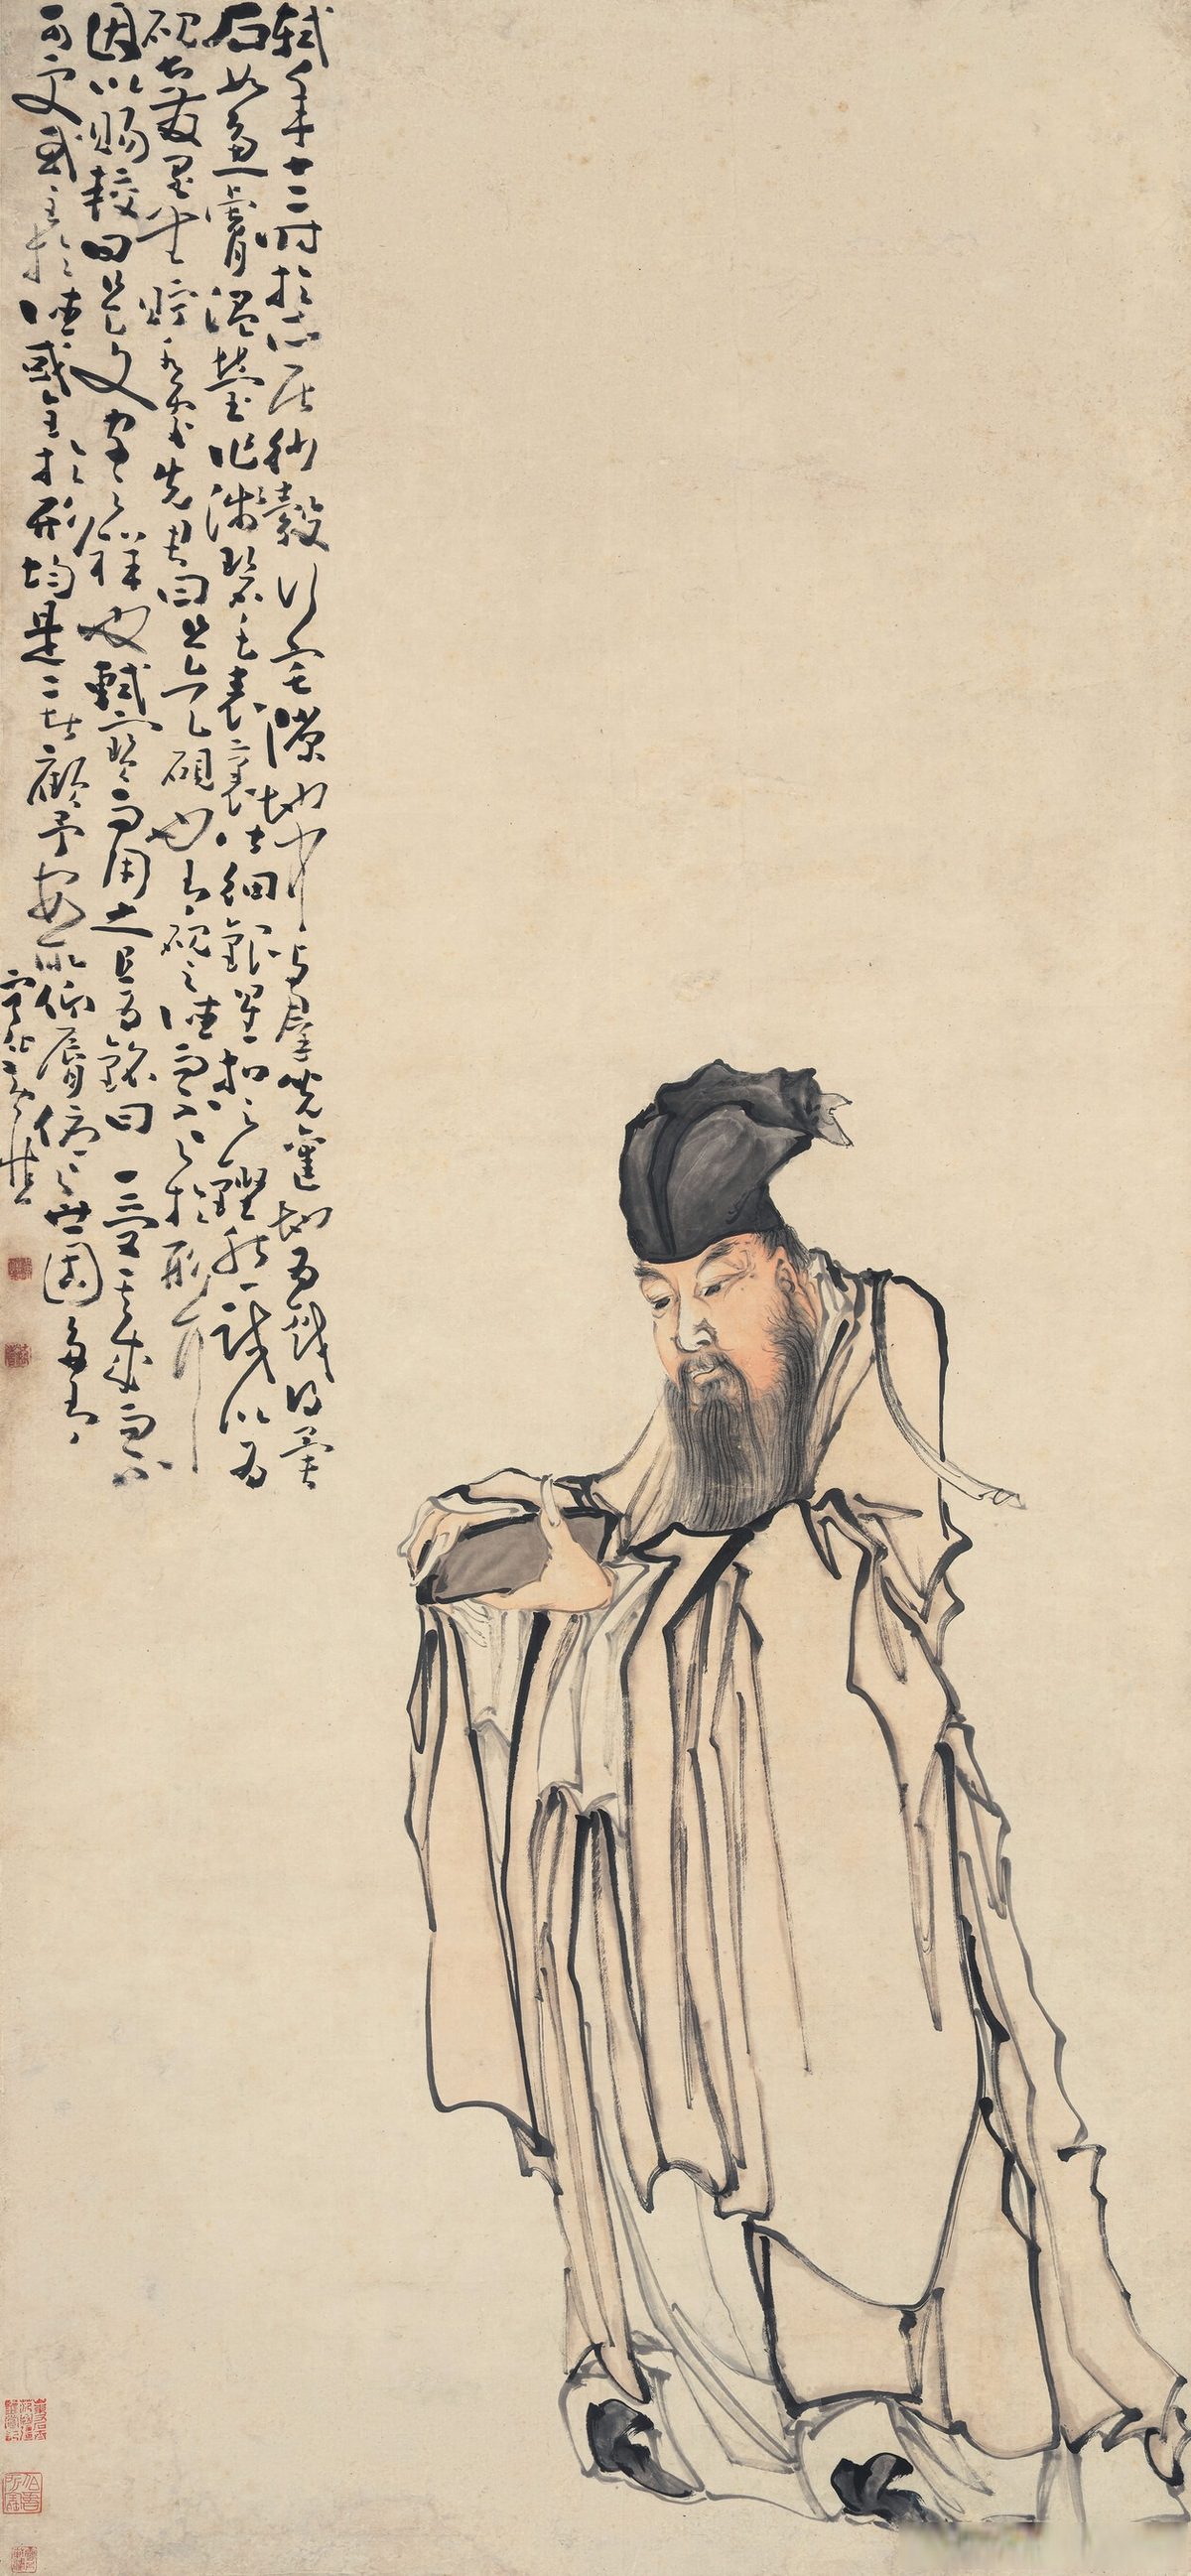 軾年十二時於所居紗縠行宅隙地中與群兒鑿地為戲得異
石如魚膚溫瑩作淺碧色表裏皆細銀星扣之鏗然試以為
硯甚發墨無貯水處先君曰是天硯也有硯之德而不足於形耳
因以賜軾曰是文字之祥也軾寶而用之且為銘曰一受其成而不
可更或主於德或全於形均是二者顧予安取仰唇俯足世固多有
寧化黃慎